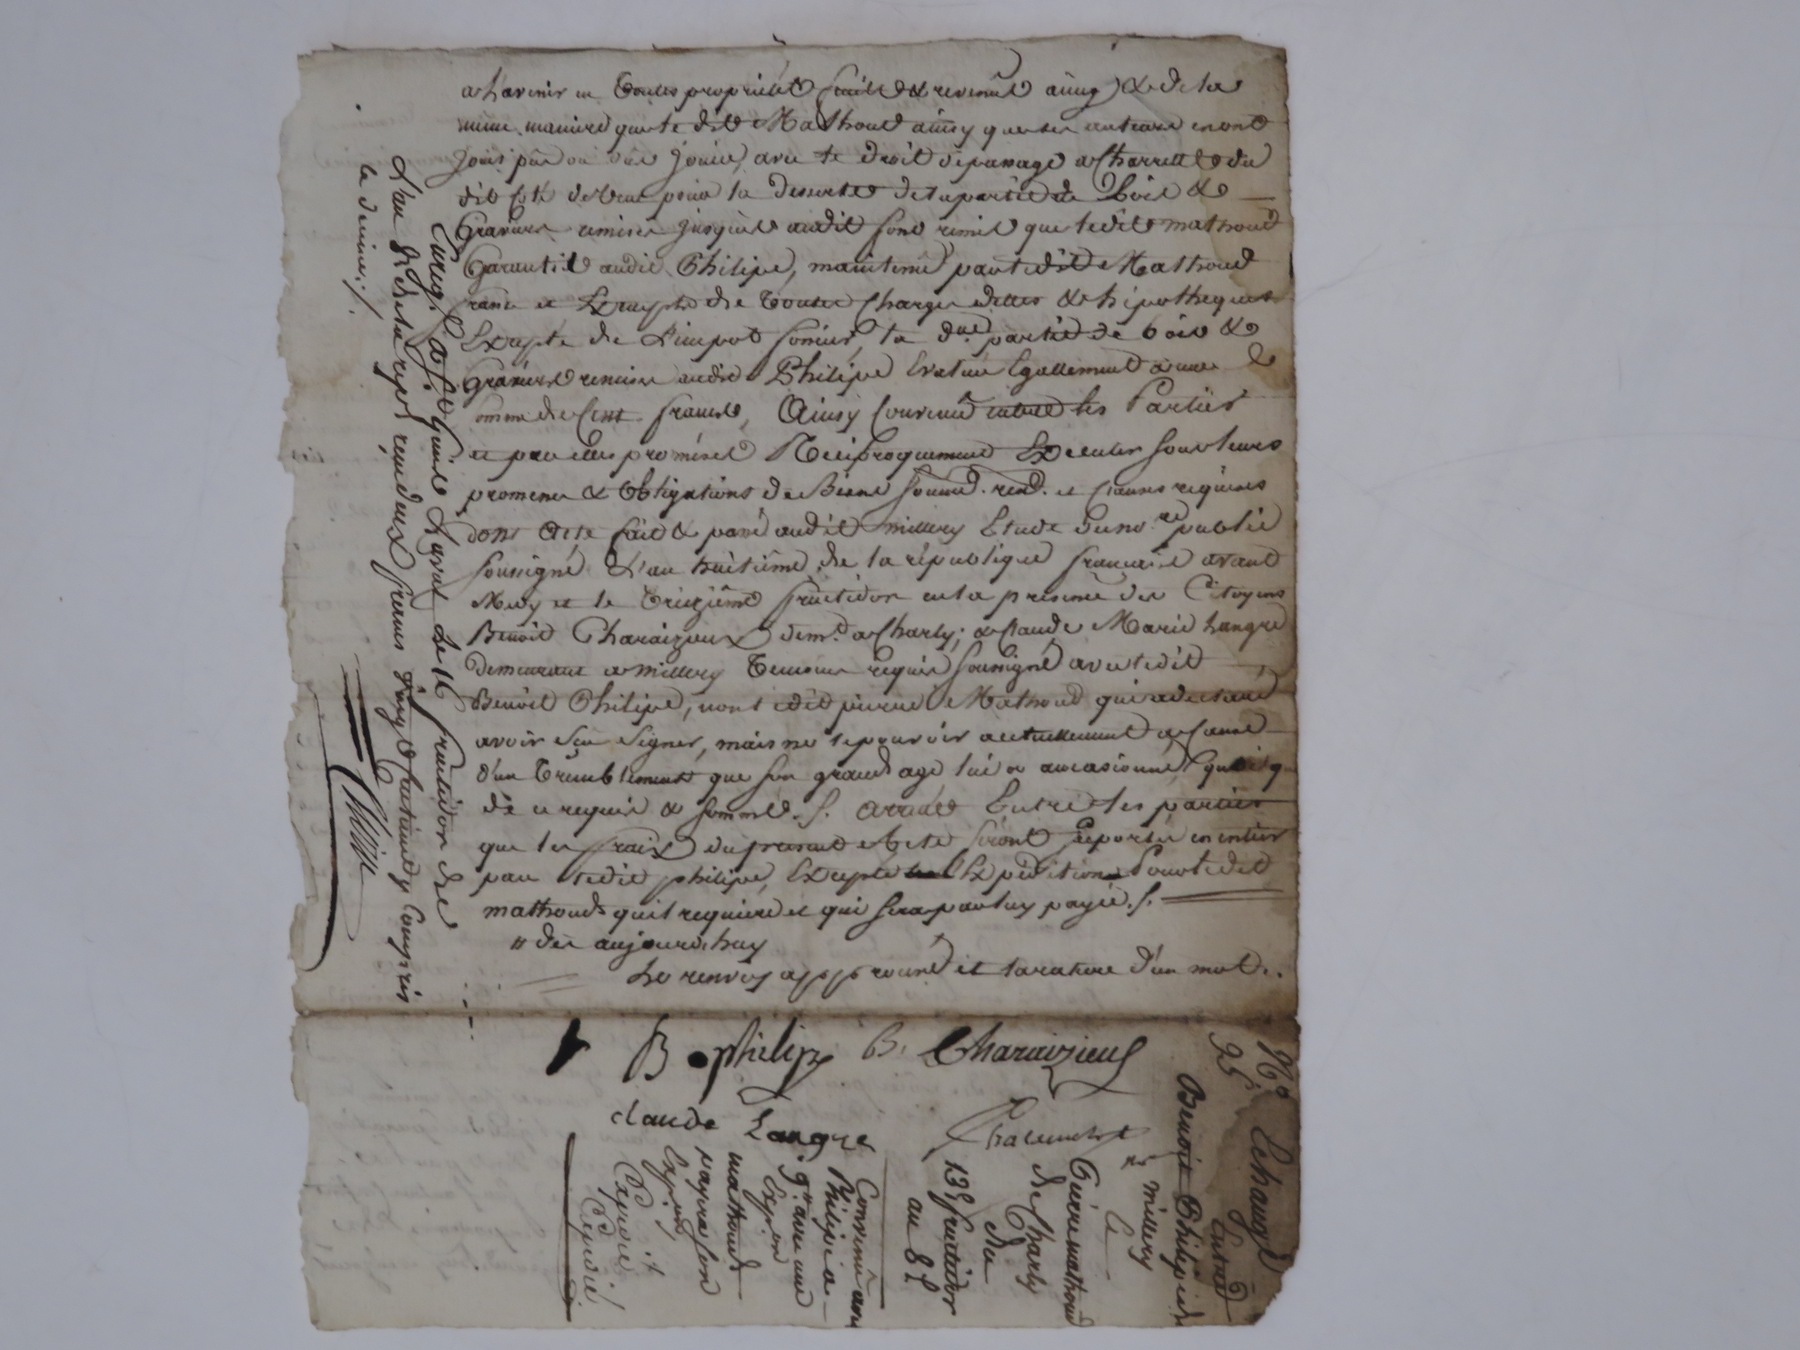 a l'avenir en toutes propriété fruits & revenus ainsy & de la
meme maniere que le dit Mathoud ainsy que ses auteurs en ont
jouis pû ou dûe jouire, avec le droit de passage a Charrette du
dit Coté de pour la desserte de la partie de Bois &
Graviere remises jusques audit fond remis que ledit mathoud
Garantit audit Philipe, maintenu par ledit Mathoud
franc et Exempts de toutes Charges dettes & hipotheques
Excepté de l'impot foncier, la d.ue partie de bois &
Graviere remise audit Philipe Evaluée Egallement a une
somme de Cent francs, Ainsy Convenu entre les Parties
et par elles promisent Réciproquement Executer sous leurs
promesses & obligations de Biens soumis. ren.d. et clauses requises
dont Acte fait & passé audit millery Etude du no.re public
soussigné L'an huitième de la république francaise avant
Midy et le treizième fructidor en la presence des Citoyens
Benoit Charaizieux dem.t a Charly; & Claude Marie Langre
demeurant a millery temoins requis soussigné avec ledit
Benoit Philipe, non ledit pierre Mathoud qui a declaré
avoir sçu signer, mais ne le pouvoir actuellement a cause
d'un tremblement que son grand age lui a occasionné,
de ce requis & sommé. /. arreté Entre les parties
que les fraix du present Acte seront suporté en entier
par ledit philipe, Excepté Expedition Pour ledit
mathoud qu'il requiere et qui sera par luy payée./.
" des aujourd'huy
Le renvoy approuvé et la rature d'un mot.
B philipe B. Charaizieux
Claude Langre
Enreg. a St Genis Laval le 16 fructidor de
L'an 8 de la rep. reçu deux francs vingt centimes y Compris
la decime ./.
N° 95. Echange
Entre
Benoit Philipe de
millery
&
Pierre mathoud
de Charly
du
13e fructidor
an 8e
Convenu avec
Philipe a
avec une
Expon
mathoud
payera son
Expon
Expedié
Expedié